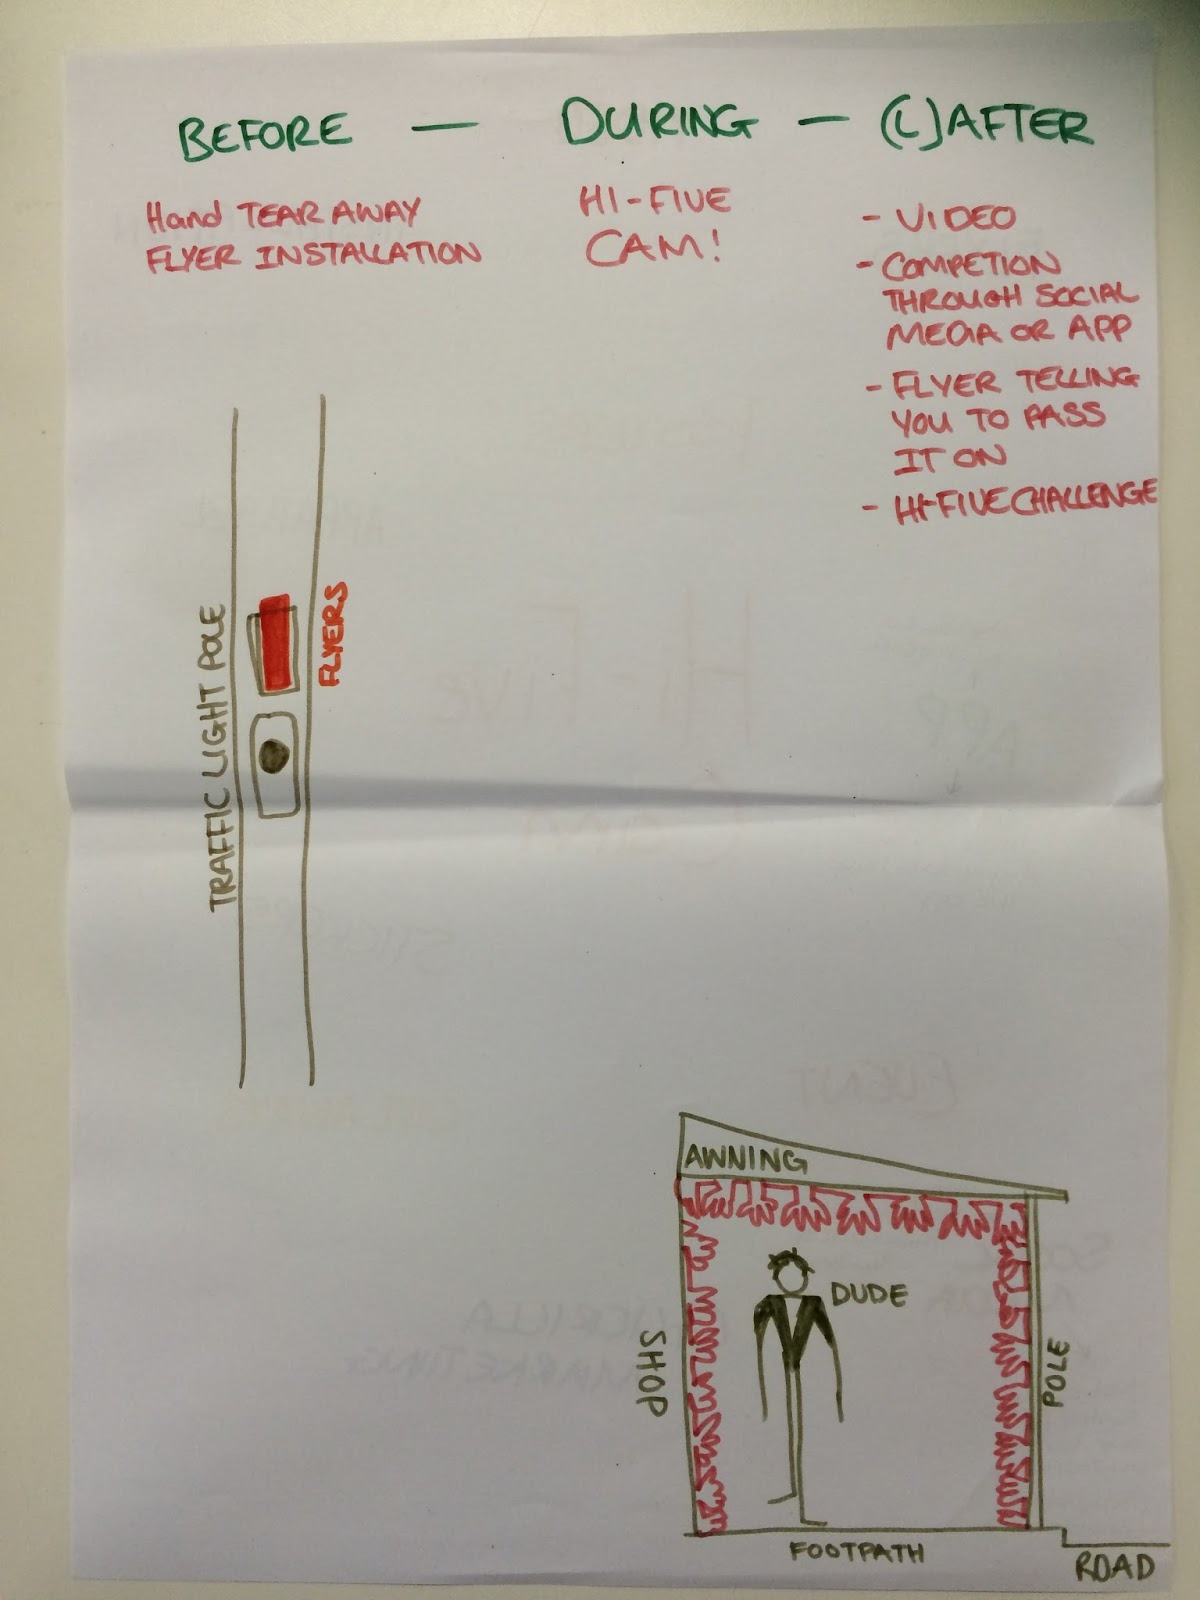 BEFORE — DURING — (L)AFTER
Hand TEAR AWAY
FLYER INSTALLATION
HI-FIVE
CAM!
- VIDEO
- COMPETION
THROUGH SOCIAL
MEDIA OR APP
- FLYER TELLING
YOU TO PASS
IT ON
- HI-FIVE CHALLENGE
TRAFFIC LIGHT POLE
FLYERS
HI-FIVE
CAM
STICKERS
EVENT
GUERILLA
MARKETING
AWNING
DUDE
SHOP
POLE
FOOTPATH
ROAD